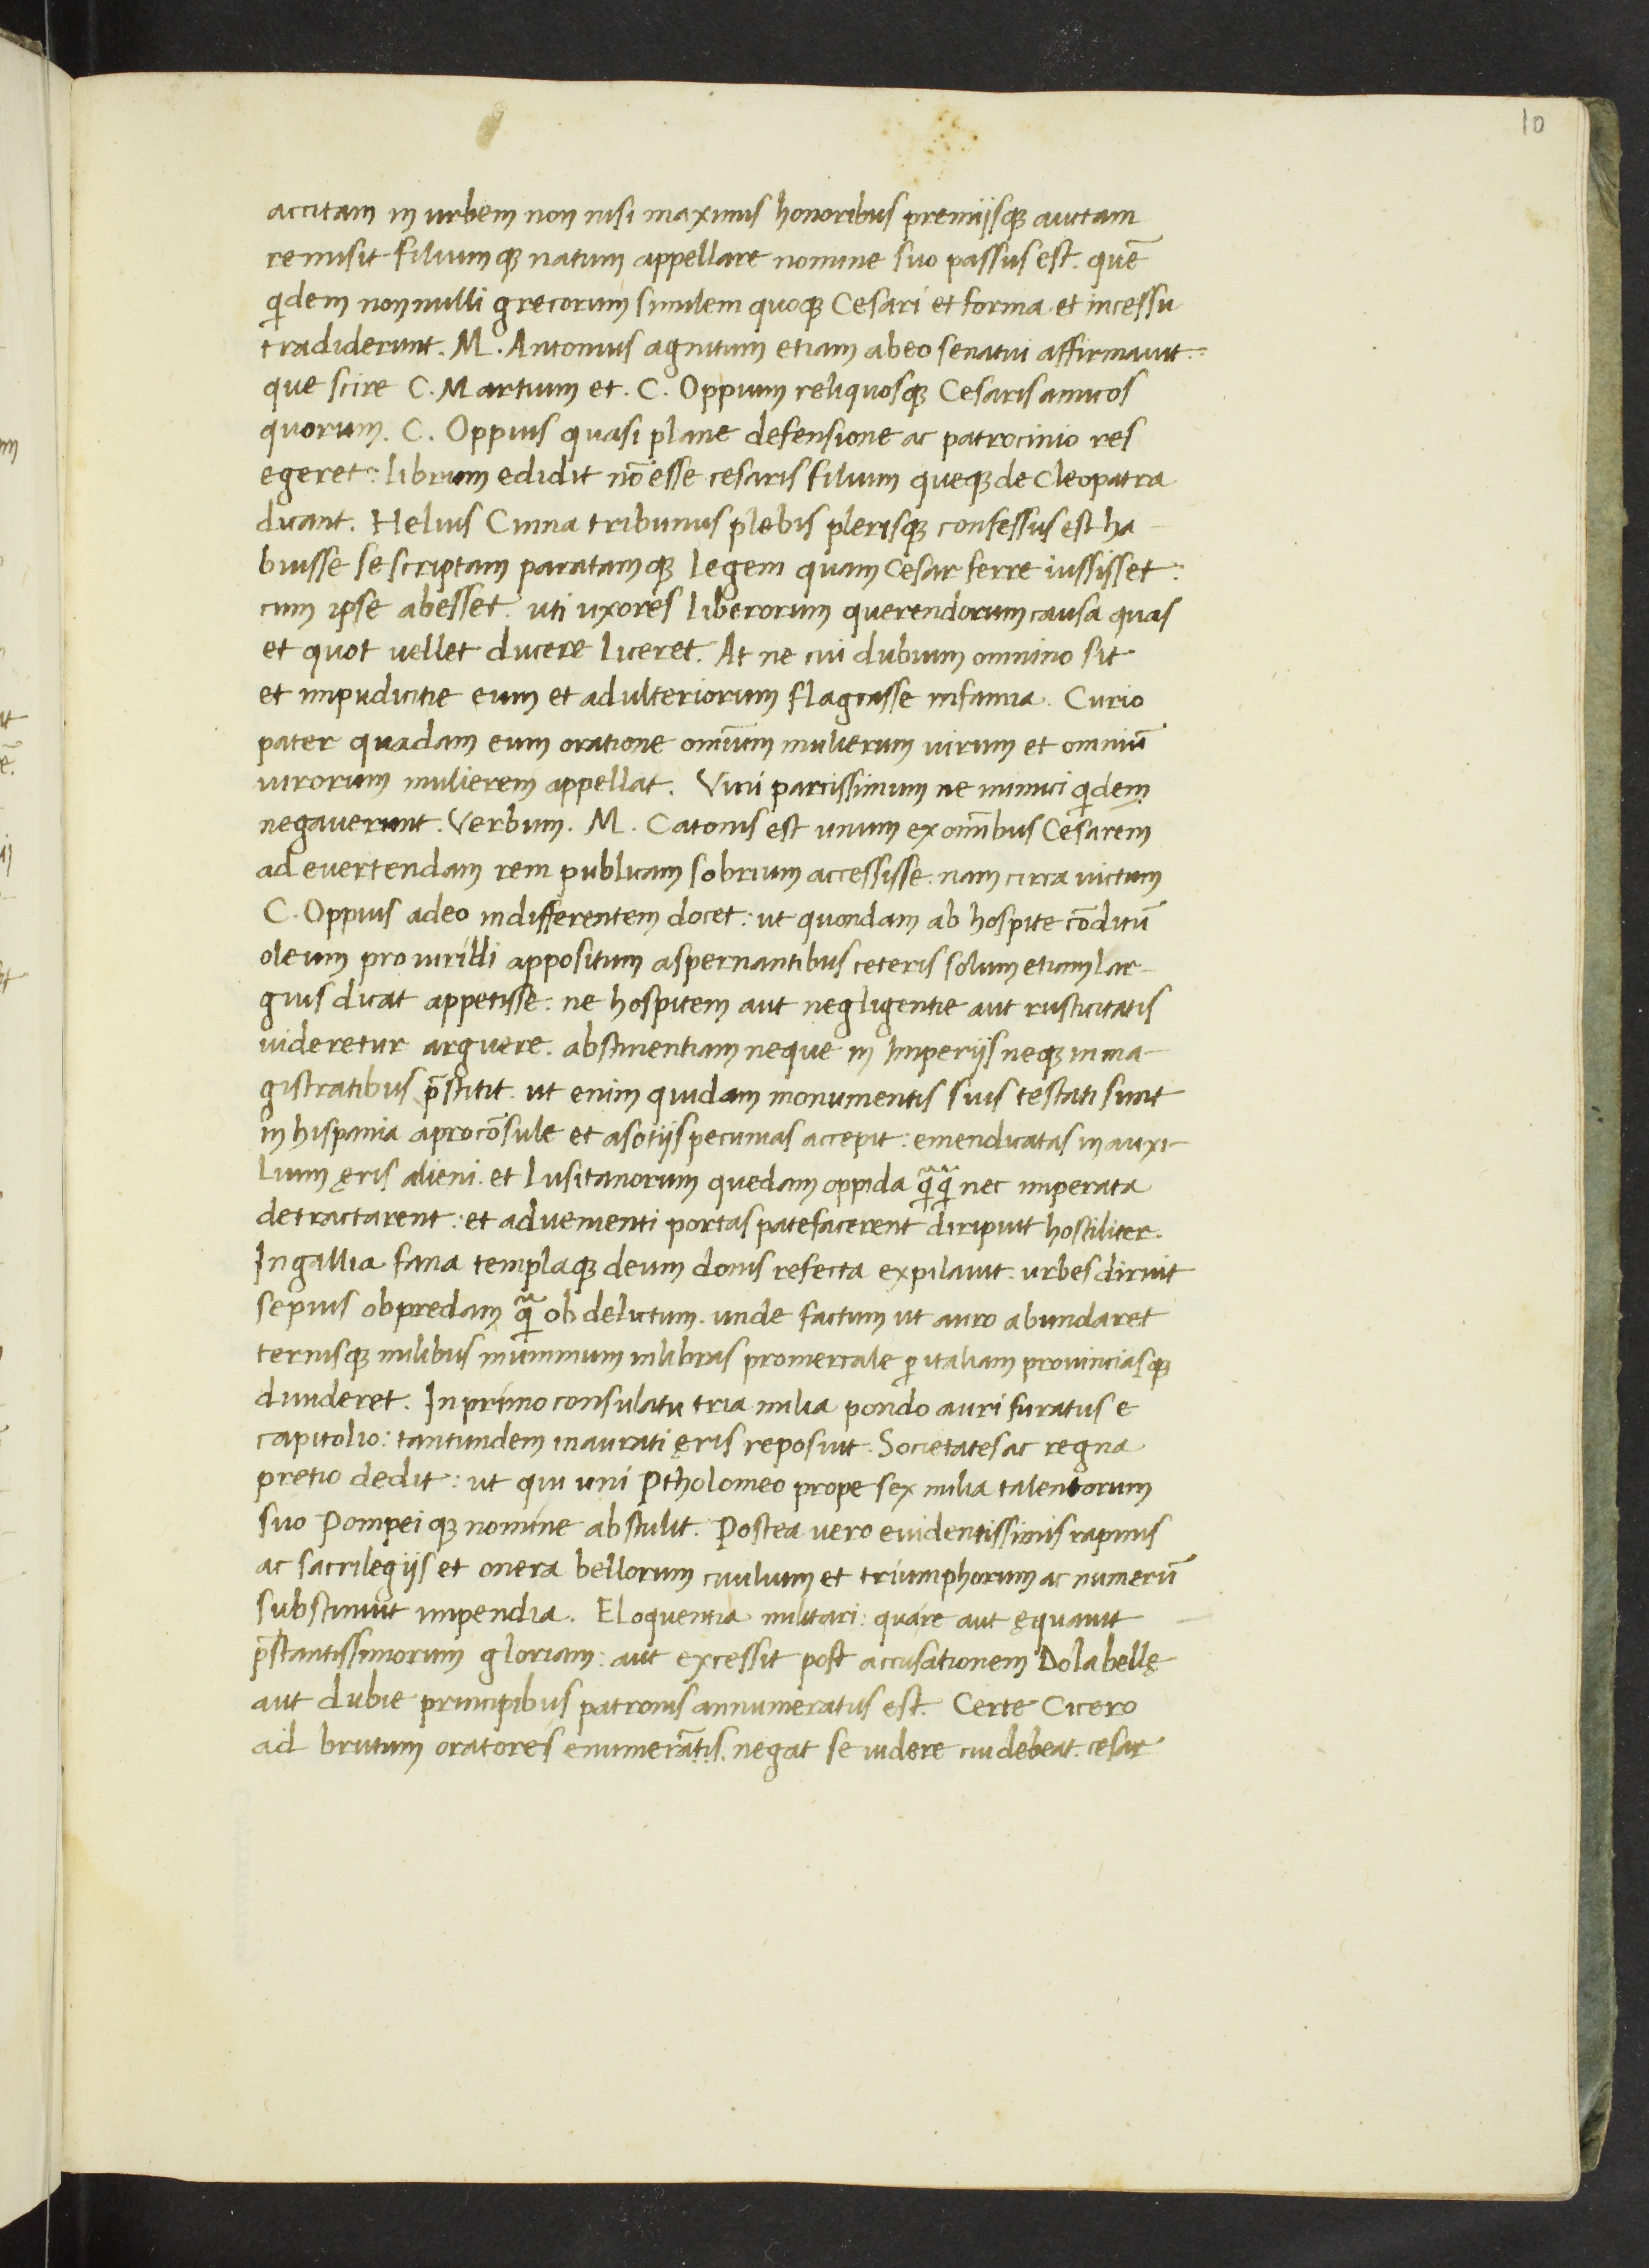 10
accitam in urbem non nisi maximis honoribus premiisq; auctam
remisit filiumq; natum appellare nomine suo passus est. quē
qͥdem nonnulli grecorum similem quoq; Cesari et forma et incessu
tradiderunt. M. Antonius agnitum etiam ab eo senatui affirmauit:
que scire C. Martium et. C. Oppium reliquosq; Cesaris amicos
quorum. C. Oppius quasi plane defensione ac patrocinio res
egeret: librum edidit nō esse cesaris filium queq; de Cleopatra
dicant. Helius Cinna tribunus plebis plerisq; confessus est ha-
buisse se scriptam paratamq; legem quam Cesar ferre iussisset:
cum ipse abesset. uti uxores liberorum querendorum causa quas
et quot uellet ducere liceret. At ne cui dubium omnino sit
et impudicitie eum et adulteriorum flagrasse infamia. Curio
pater quadam eum oratione omĩum mulierum uirum et omniū
uirorum mulierem appellat. Vini parcissimum ne inimici qͥdem
negauerunt. Verbum. M. Catonis est unum ex omĩbus Cesarem
ad euertendam rem publicam sobrium accessisse. nam circa uictum
C. Oppius adeo indifferentem docet: ut quondam ab hospite cōditū
oleum pro uirilli appositum aspernantibus ceteris solum etiam lar-
gius dicat appetisse. ne hospitem aut negligentie aut rusticitatis
uideretur arguere. abstinentiam neque in Imperijs neq; in ma-
gistratibus p̄stitit. ut enim quidam monumentis suis testati sunt
in hispania a procōsule et a sotijs pecunias accepit: emendicatas in auxi-
lium ęris alieni. et lusitanorum quedam oppida qͣqͣ nec imperata
detractarent: et aduenienti portas patefacerent diripuit hostiliter.
In gallia fana templaq; deum donis referta expilauit. urbes diruit
sepius ob predam qͣ ob delictum. unde factum ut auro abundaret
ternisq; milibus nummum in libras promercale ꝑ italiam prouinciasq;
diuideret. In primo consulatu tria milia pondo auri furatus e
capitolio: tantundem inaurati ęris reposuit. Societates ac regna
pretio dedit: ut qui uni Ptholomeo prope sex milia talentorum
suo Pompeiq; nomine abstulit. Postea uero euidentissimis rapinis
ac sacrilegijs et onera bellorum ciuilium et triumphorum ac numerū
substinuit impendia. Eloquentia militari: quare aut ęquauit
p̄stantissimorum gloriam: aut excessit post accusationem Dolabellę
aut dubie principibus patronis annumeratus est. Certe Cicero
ad brutum oratores enumerātis. negat se uidere cui debeat. cesar